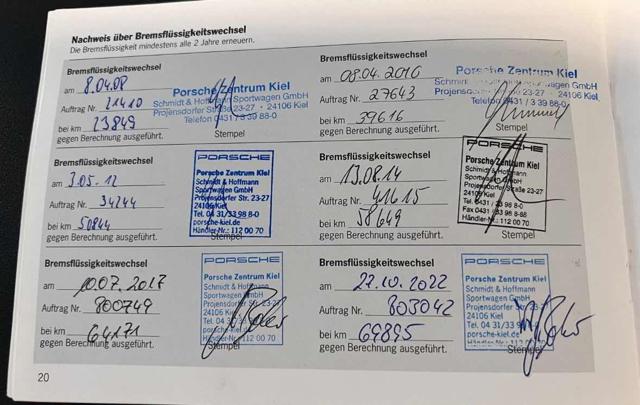 Nachweis über Bremsflüssigkeitswechsel
Die Bremsflüssigkeit mindestens alle 2 Jahre erneuern.
Bremsflüssigkeitswechsel
am 8.04.08
Auftrag Nr. 21410
bei km 23849
gegen Berechnung ausgeführt.
Porsche Zentrum Kiel
Schmidt & Hoffmann Sportwagen GmbH
Projensdorfer Straße 23-27 · 24106 Kiel
Telefon 0431 / 3 39 88-0
Stempel
Bremsflüssigkeitswechsel
am 08.04.2010
Auftrag Nr. 27643
bei km 39616
gegen Berechnung ausgeführt.
Porsche Zentrum Kiel
Schmidt & Hoffmann Sportwagen GmbH
Projensdorfer Straße 23-27 · 24106 Kiel
Telefon 0431 / 3 39 88-0
Stempel
Bremsflüssigkeitswechsel
am 3.05.12
Auftrag Nr. 34244
bei km 50844
gegen Berechnung ausgeführt.
PORSCHE
Porsche Zentrum Kiel
Schmidt & Hoffmann
Sportwagen GmbH
Projensdorfer Str. 23-27
24106 Kiel
Tel. 04 31/33 98 8-0
porsche-kiel.de
Händler-Nr.: 112 00 70
Stempel
Bremsflüssigkeitswechsel
am 13.08.14
Auftrag Nr. 41615
bei km 58649
gegen Berechnung ausgeführt.
PORSCHE
Porsche Zentrum Kiel
Schmidt & Hoffmann
Sportwagen GmbH
Projensdorfer Straße 23-27
24106 Kiel
Tel. 0431 / 33 98 8-0
Fax 0431 / 33 98 8-88
Händler-Nr. 112 00 70
Stempel
Bremsflüssigkeitswechsel
am 10.07.2017
Auftrag Nr. 800749
bei km 64171
gegen Berechnung ausgeführt.
PORSCHE
Porsche Zentrum Kiel
Schmidt & Hoffmann
Sportwagen GmbH
Projensdorfer Str. 23-27
24106 Kiel
Tel. 04 31/33 98 8-0
porsche-kiel.de
Händler-Nr.: 112 00 70
Stempel
Bremsflüssigkeitswechsel
am 27.10.2022
Auftrag Nr. 803042
bei km 69895
gegen Berechnung ausgeführt.
PORSCHE
Porsche Zentrum Kiel
Schmidt & Hoffmann
Sportwagen GmbH
Projensdorfer Str. 23-27
24106 Kiel
Tel. 04 31/33 98 8-0
porsche-kiel.de
Händler-Nr.: 112 00 70
Stempel
20